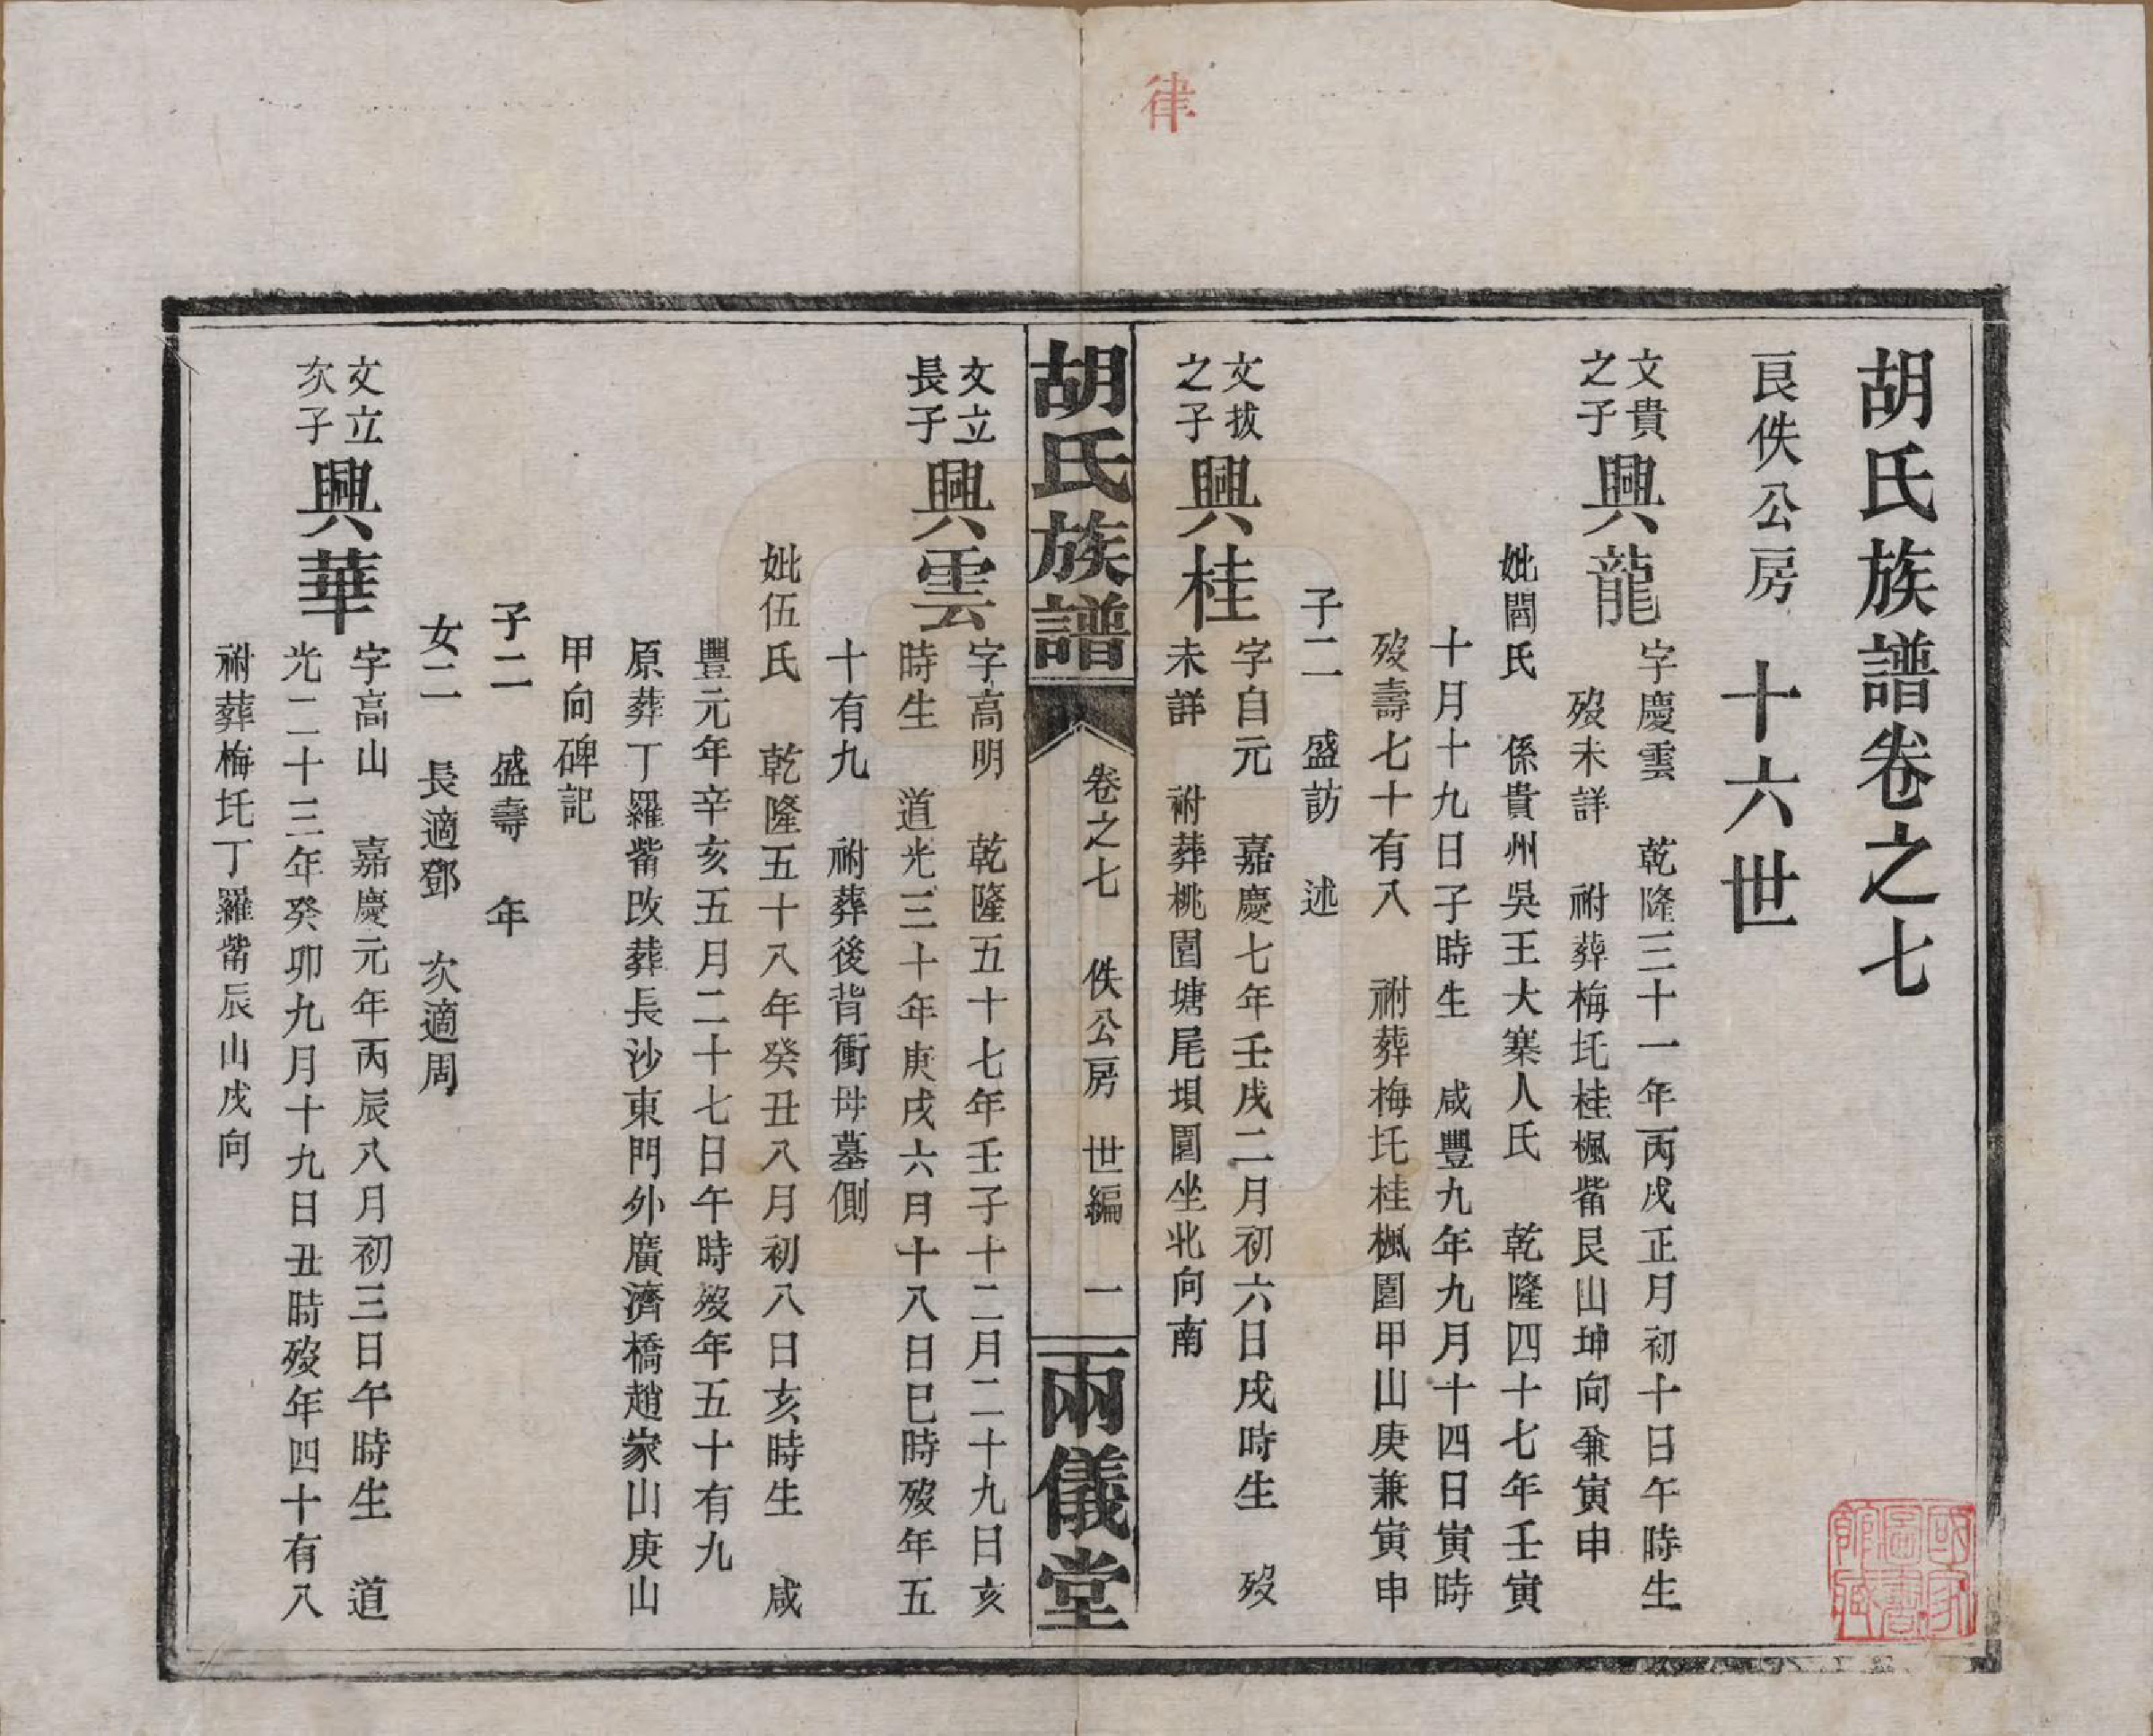 律
胡氏族譜卷之七
良佚公房 十六世
文貴之子 興龍 字慶雲 乾隆三十一年丙戌正月初十日午時生
歿未詳 祔葬梅圫桂楓觜艮山坤向兼寅申
妣閻氏 係貴州吳王大寨人氏 乾隆四十七年壬寅
十月十九日子時生 咸豐九年九月十四日寅時
歿壽七十有八 祔葬梅圫桂楓園甲山庚兼寅申
子二 盛訪 述
文拔之子 興桂 字自元 嘉慶七年壬戌二月初六日戌時生 歿
未詳 祔葬桃園塘尾垻園坐北向南
胡氏族譜 卷之七 佚公房 世編 一 兩儀堂
文立長子 興雲 字高明 乾隆五十七年壬子十二月二十九日亥
時生 道光三十年庚戌六月十八日巳時歿年五
十有九 祔葬後背衝母墓側
妣伍氏 乾隆五十八年癸丑八月初八日亥時生 咸
豐元年辛亥五月二十七日午時歿年五十有九
原葬丁羅觜改葬長沙東門外廣濟橋趙家山庚山
甲向碑記
子二 盛壽 年
女二 長適鄧 次適周
文立次子 興華 字高山 嘉慶元年丙辰八月初三日午時生 道
光二十三年癸卯九月十九日丑時歿年四十有八
祔葬梅圫丁羅觜辰山戌向
國家圖書館藏